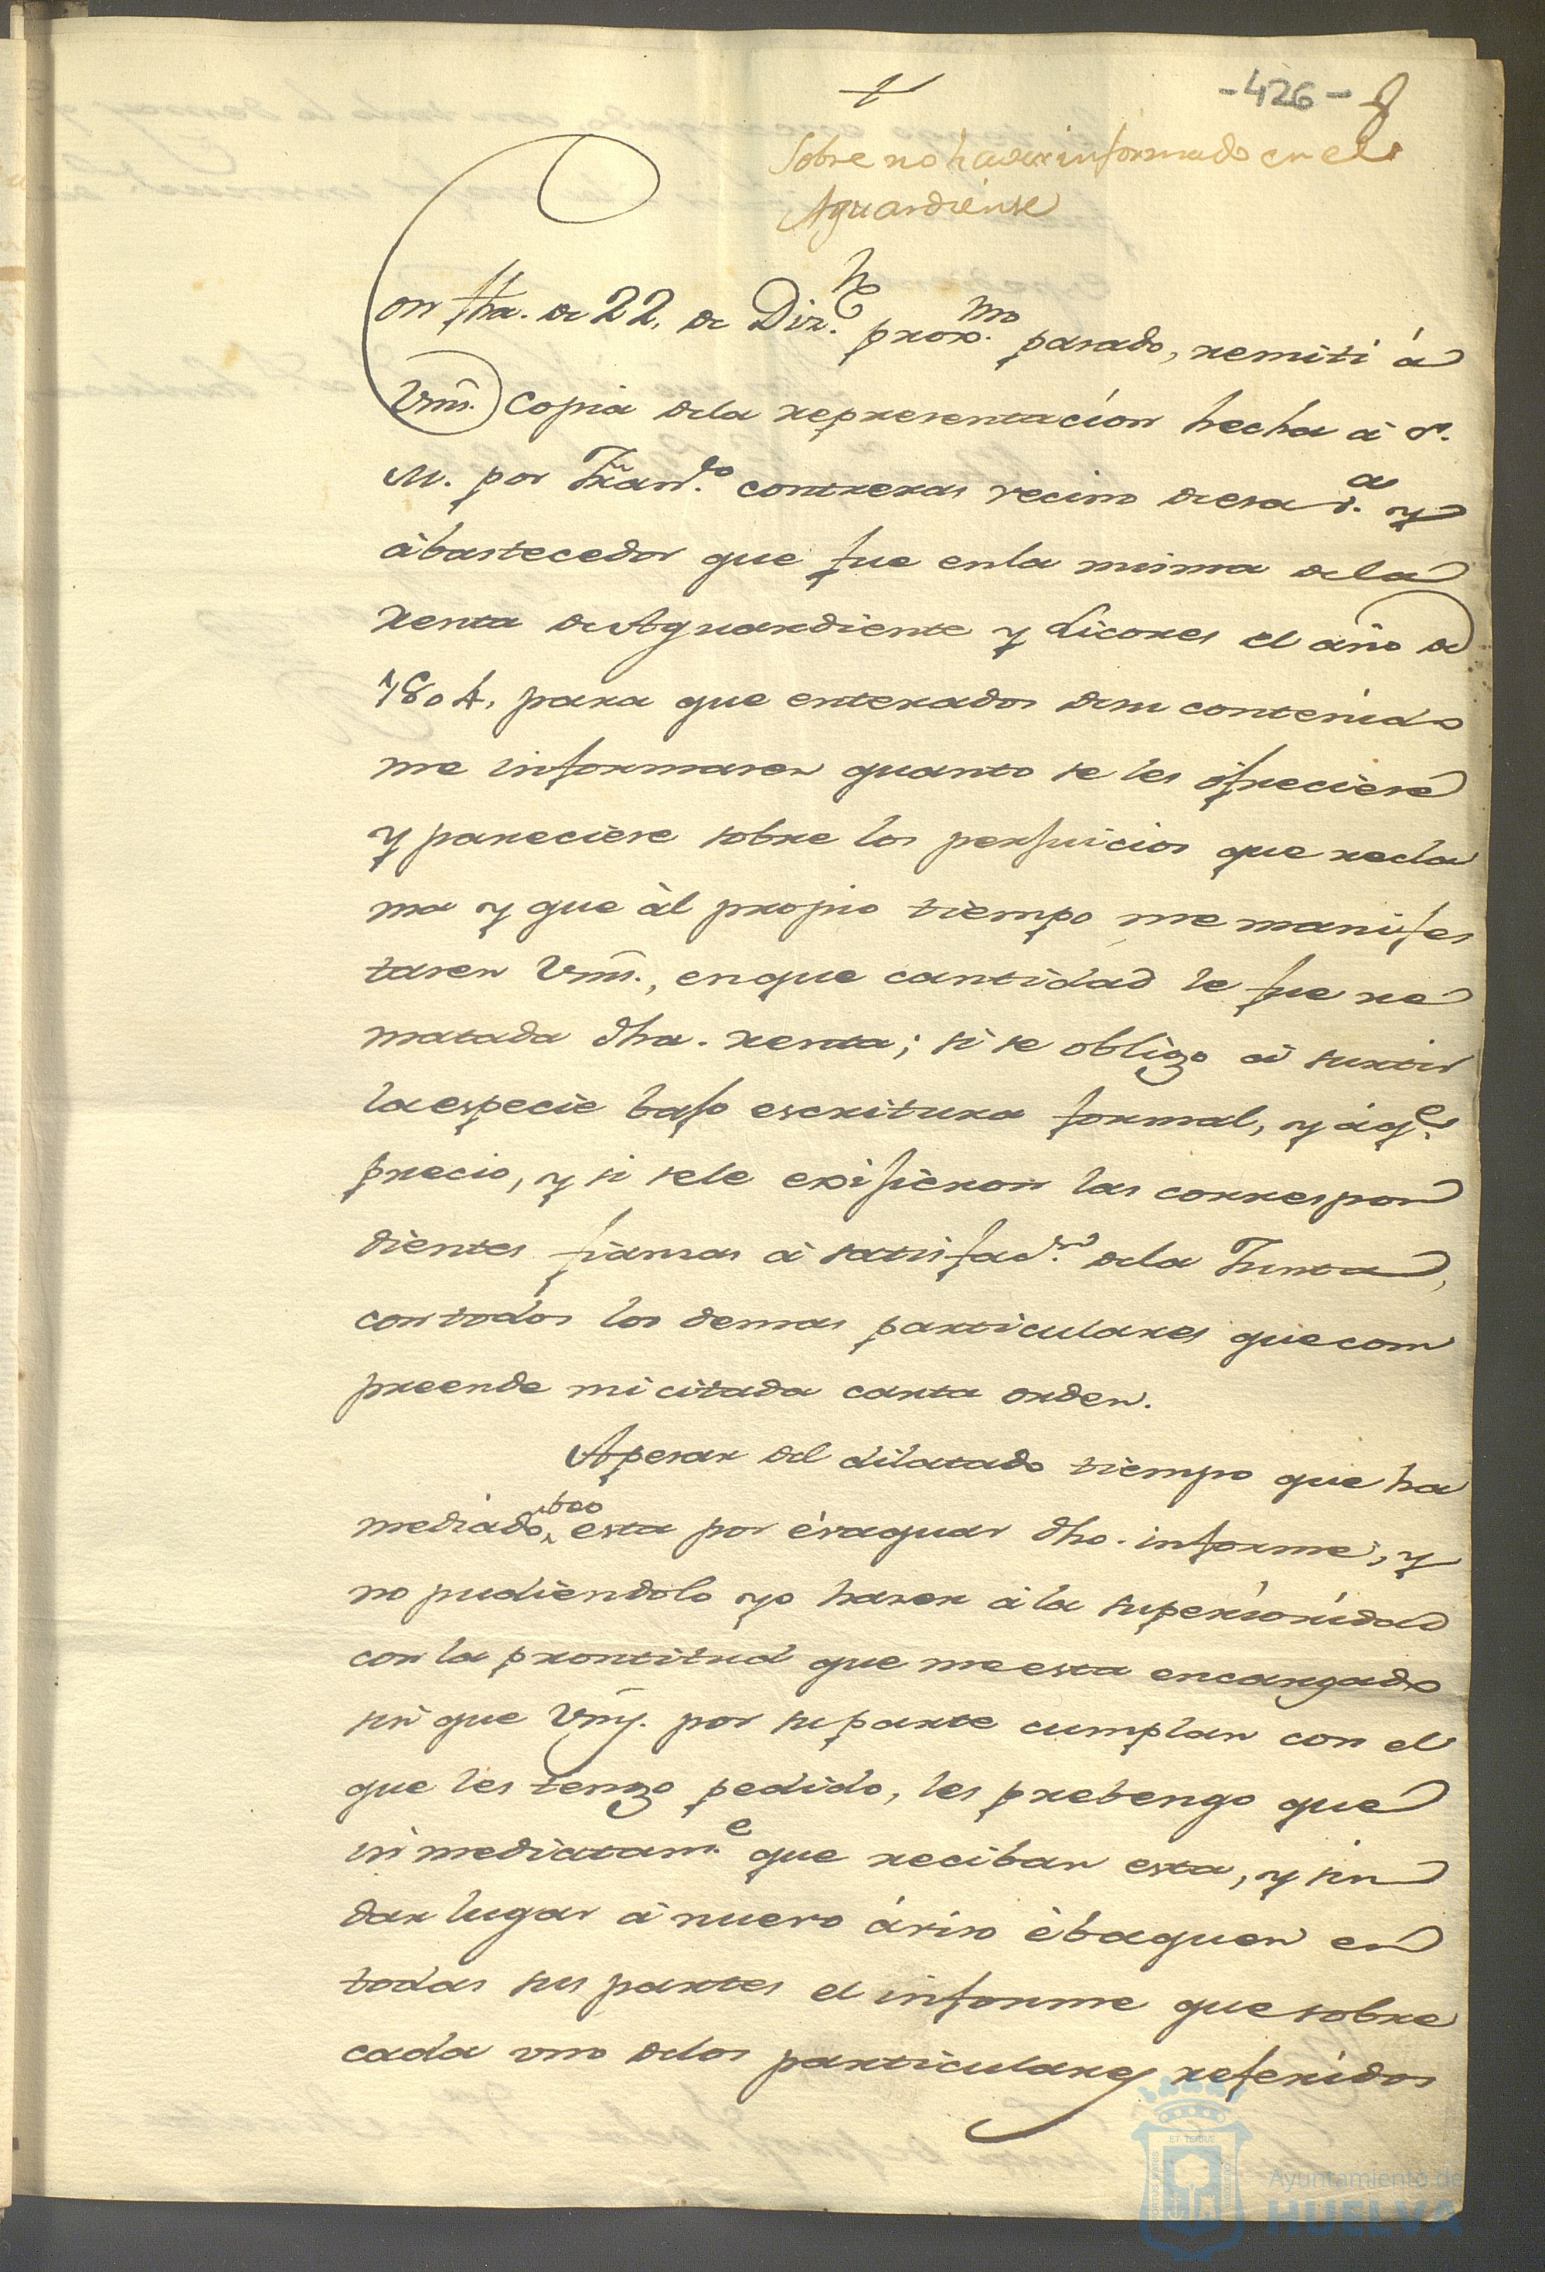 -426- 8
+
Sobre no haver informado en el
Aguardiense
Con fha. de 22. de Diz.e prox.mo pasado, remiti á
Vms. Copia dela representacion hecha à S.
M. por Fran.co contreras vecino de esa v.a y
àbastecedor que fue enla misma dela
Renta de Aguardiente y Licores el año de
1804, para que enterados desu contenido
me informasen quanto se les ofreciese
y pareciese sobre los perjuicios que recla
ma y que àl propio tiempo me manifes
tasen Vms., enque cantidad le fue re
matada dha. renta; si se obligo à surtir
la especie bajo escritura formal, y áq.e
precio, y si sele exijieron las correspon
dientes fianzas à satisfac.on dela Junta,
con todos los demas particulares que com
preende mi citada carta orden.
Apesar del dilatado tiempo que ha
mediado, esta por évaquar dho. informe, y
no pudiendolo yo haser á la superioridad
con la prontitud que me esta encargado
sin que Vms. por su parte cumplan con el
que les tengo pedido, les prebengo que
inmediatam.e que reciban esta, y sin
dar lugar à nuevo áviso èbaquen en
todas sus partes el informe que sobre
cada uno delos particulares referidos
Ayuntamiento de
HUELVA